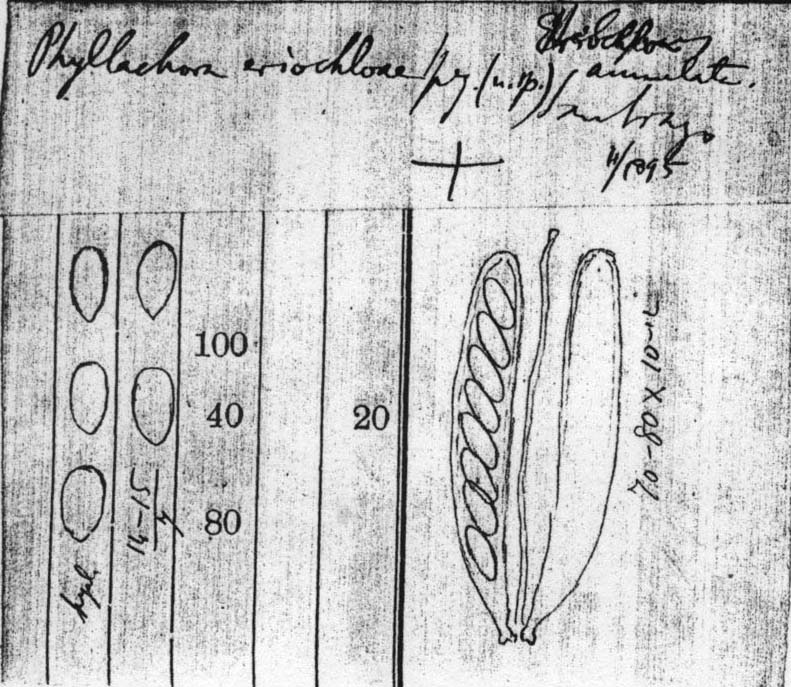 Phyllachora eriochloae Speg. (n. sp.)
Eriochloa annulata.
11/1895
100
40
20
80
14-15
hyal.
70-80 X 10-11